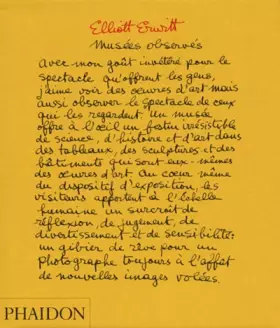 Elliott Erwitt
Musées observés
avec mon goût invétéré pour le
spectacle qu'offrent les gens,
j'aime voir des œuvres d'art mais
aussi observer le spectacle de ceux
qui les regardent. Un musée
offre à l'œil un festin irrésistible
de science, d'histoire et d'art dans
des tableaux, des sculptures et des
bâtiments qui sont eux-mêmes
des œuvres d'art. Au cœur même
du dispositif d'exposition, les
visiteurs apportent à l'échelle
humaine un surcroît de
réflexion, de jugement, de
divertissement et de sensibilité:
un gibier de rêve pour un
photographe toujours à l'affût
de nouvelles images volées.
PHAIDON